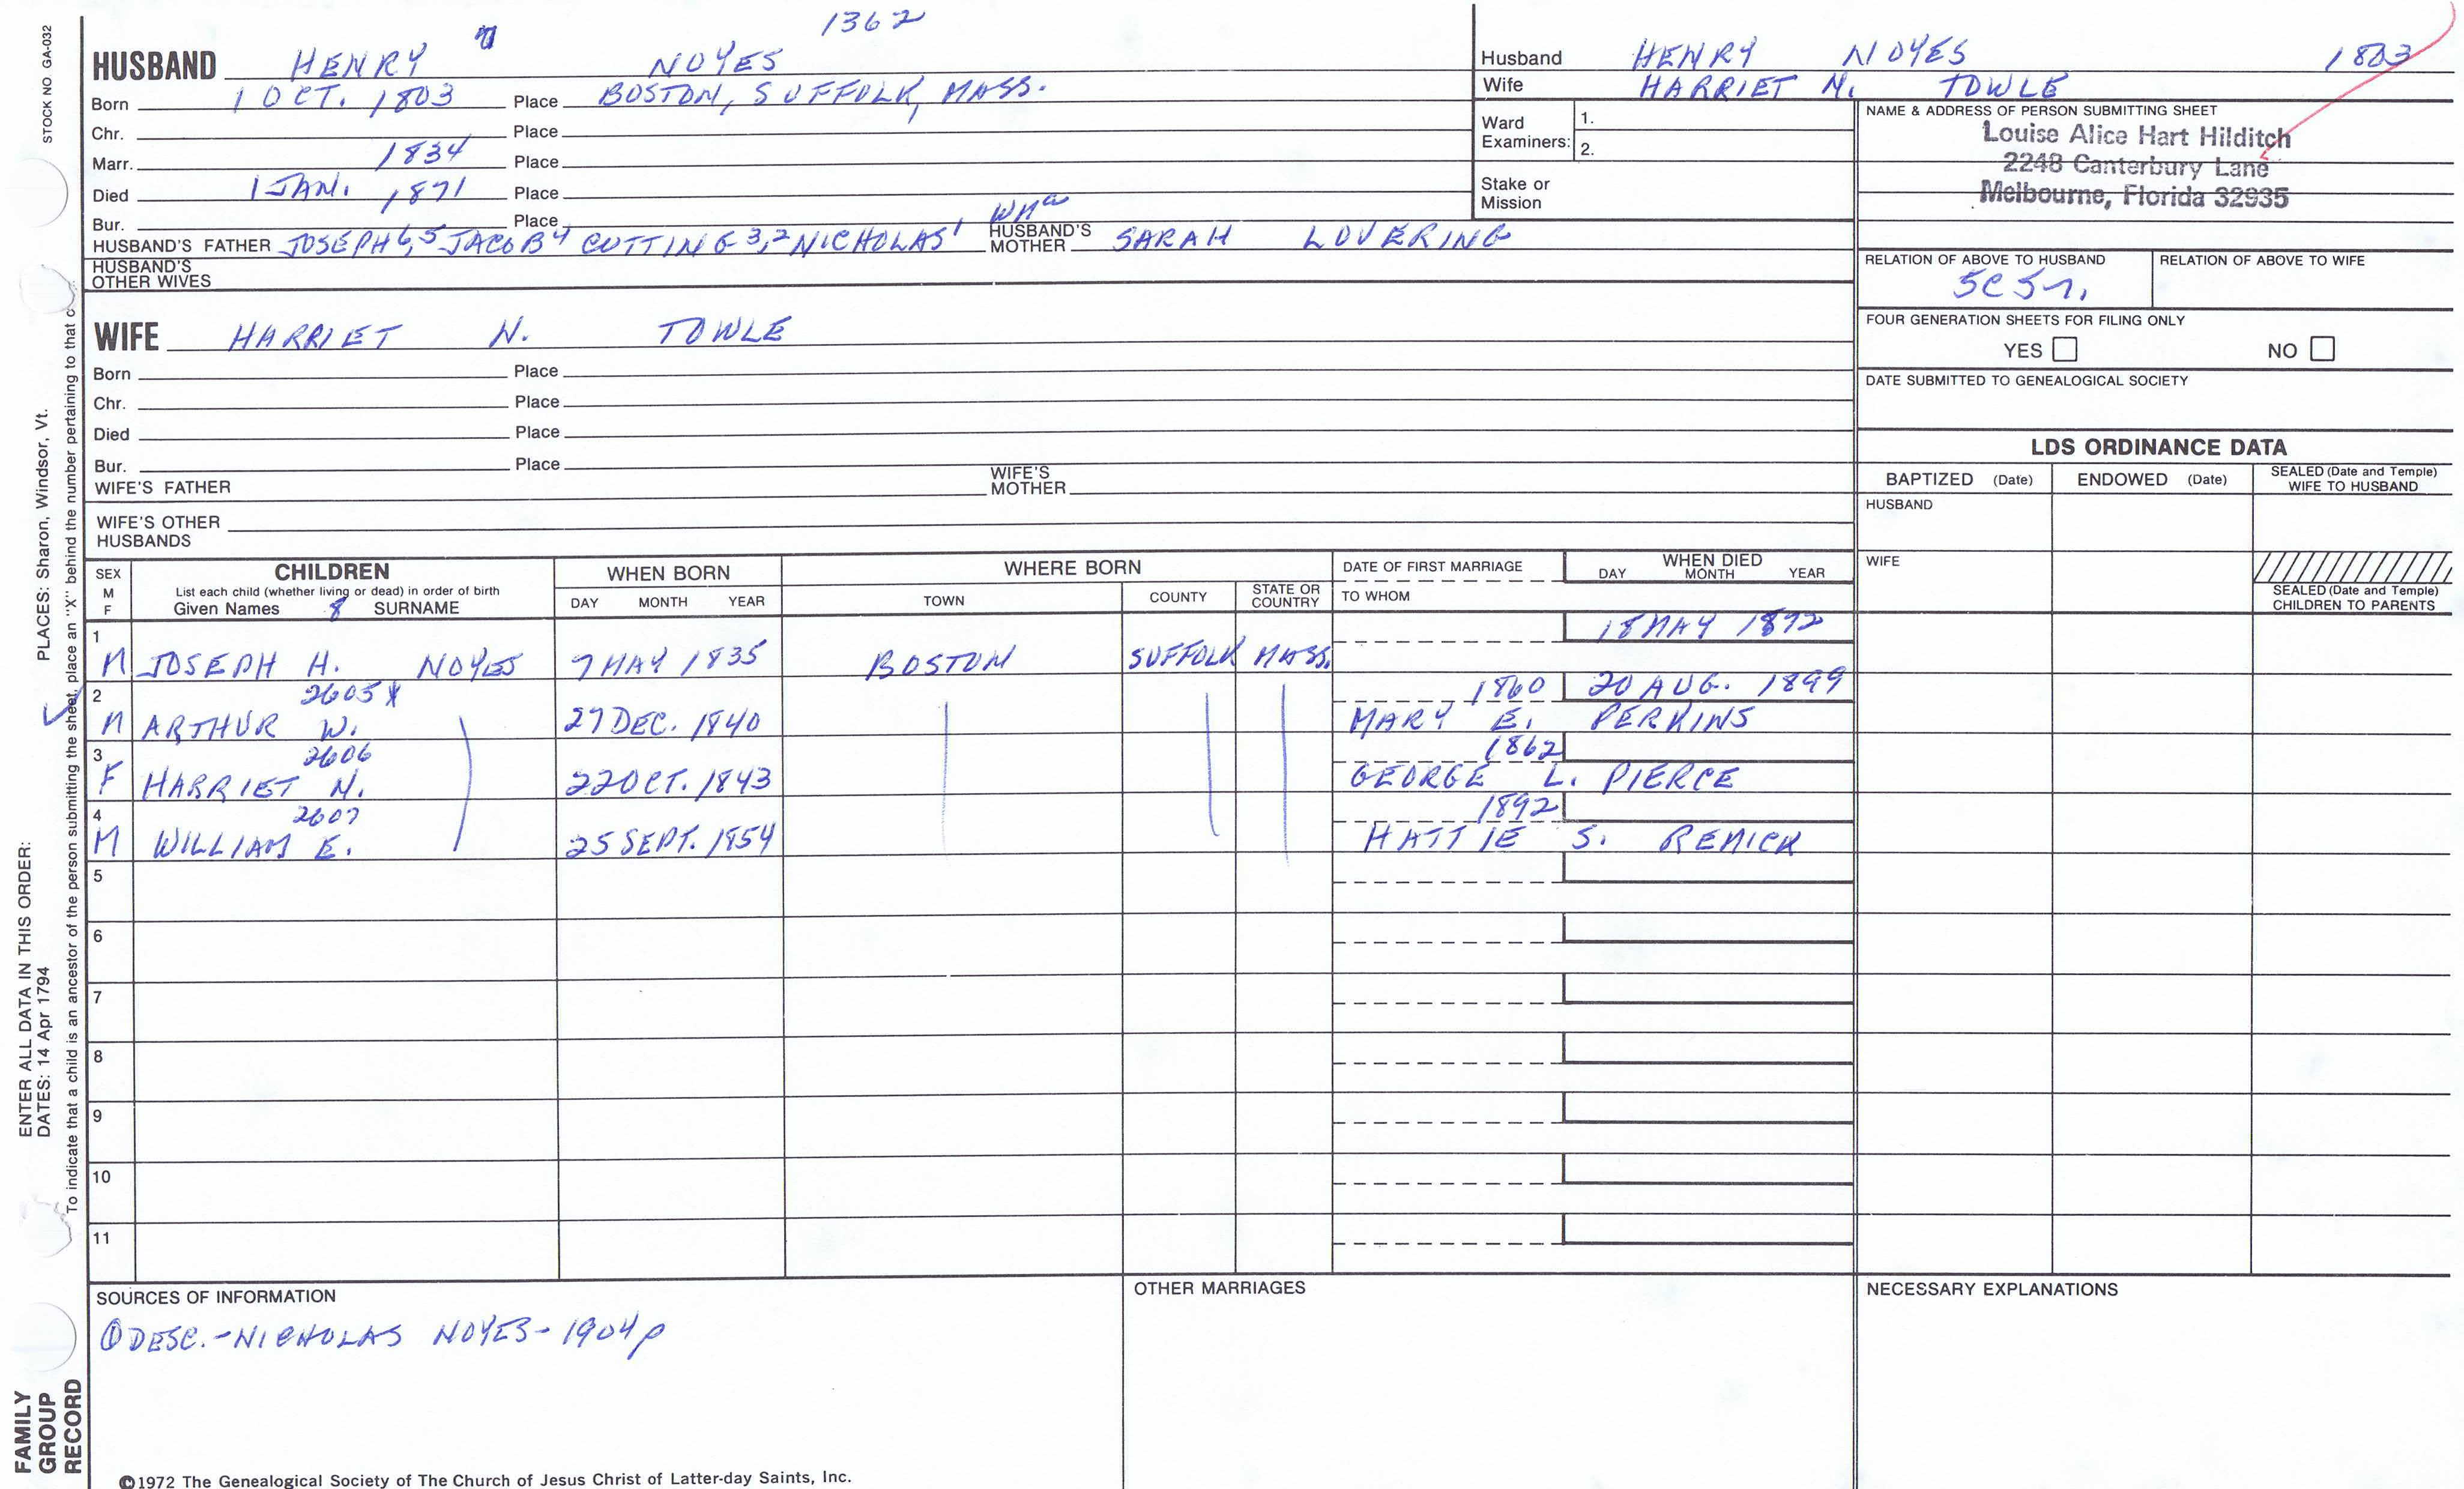 STOCK NO GA-032
1362
HUSBAND HENRY 7 NOYES
Born 1 OCT. 1803 Place BOSTON, SUFFOLK, MASS.
Chr. Place
Marr. 1834 Place
Died 1 JAN. 1871 Place
Bur. Place
HUSBAND'S FATHER JOSEPH 6,5 JACOB 4 CUTTING 3,2 NICHOLAS 1 HUSBAND'S MOTHER SARAH LOVERING
HUSBAND'S OTHER WIVES
WIFE HARRIET N. TOWLE
Born Place
Chr. Place
Died Place
Bur. Place
WIFE'S FATHER WIFE'S MOTHER
WIFE'S OTHER HUSBANDS
Husband HENRY NOYES 1803
Wife HARRIET N. TOWLE
Ward Examiners: 1.
2.
Stake or Mission
NAME & ADDRESS OF PERSON SUBMITTING SHEET
Louise Alice Hart Hilditch
2248 Canterbury Lane
Melbourne, Florida 32935
RELATION OF ABOVE TO HUSBAND RELATION OF ABOVE TO WIFE
5C5r.
FOUR GENERATION SHEETS FOR FILING ONLY
YES NO
DATE SUBMITTED TO GENEALOGICAL SOCIETY
LDS ORDINANCE DATA
BAPTIZED (Date) ENDOWED (Date) SEALED (Date and Temple) WIFE TO HUSBAND
HUSBAND
WIFE
SEALED (Date and Temple) CHILDREN TO PARENTS
SEX M F
CHILDREN
List each child (whether living or dead) in order of birth
Given Names 8 SURNAME
WHEN BORN
DAY MONTH YEAR
WHERE BORN
TOWN COUNTY STATE OR COUNTRY
DATE OF FIRST MARRIAGE
TO WHOM
WHEN DIED
DAY MONTH YEAR
1 18 MAY 1872
M JOSEPH H. NOYES 7 MAY 1835 BOSTON SUFFOLK MASS.
2 2605 X 1860 20 AUG. 1899
M ARTHUR W. 27 DEC. 1840 MARY E. PERKINS
3 2606 1862
F HARRIET N. 22 OCT. 1843 GEORGE L. PIERCE
4 2607 1892
M WILLIAM E. 25 SEPT. 1854 HATTIE S. REMICK
5
6
7
8
9
10
11
SOURCES OF INFORMATION
① DESC.-NICHOLAS NOYES-1904p
OTHER MARRIAGES
NECESSARY EXPLANATIONS
©1972 The Genealogical Society of The Church of Jesus Christ of Latter-day Saints, Inc.
FAMILY GROUP RECORD
ENTER ALL DATA IN THIS ORDER: PLACES: Sharon, Windsor, Vt.
DATES: 14 Apr 1794
To indicate that a child is an ancestor of the person submitting the sheet, place an "X" behind the number pertaining to that c